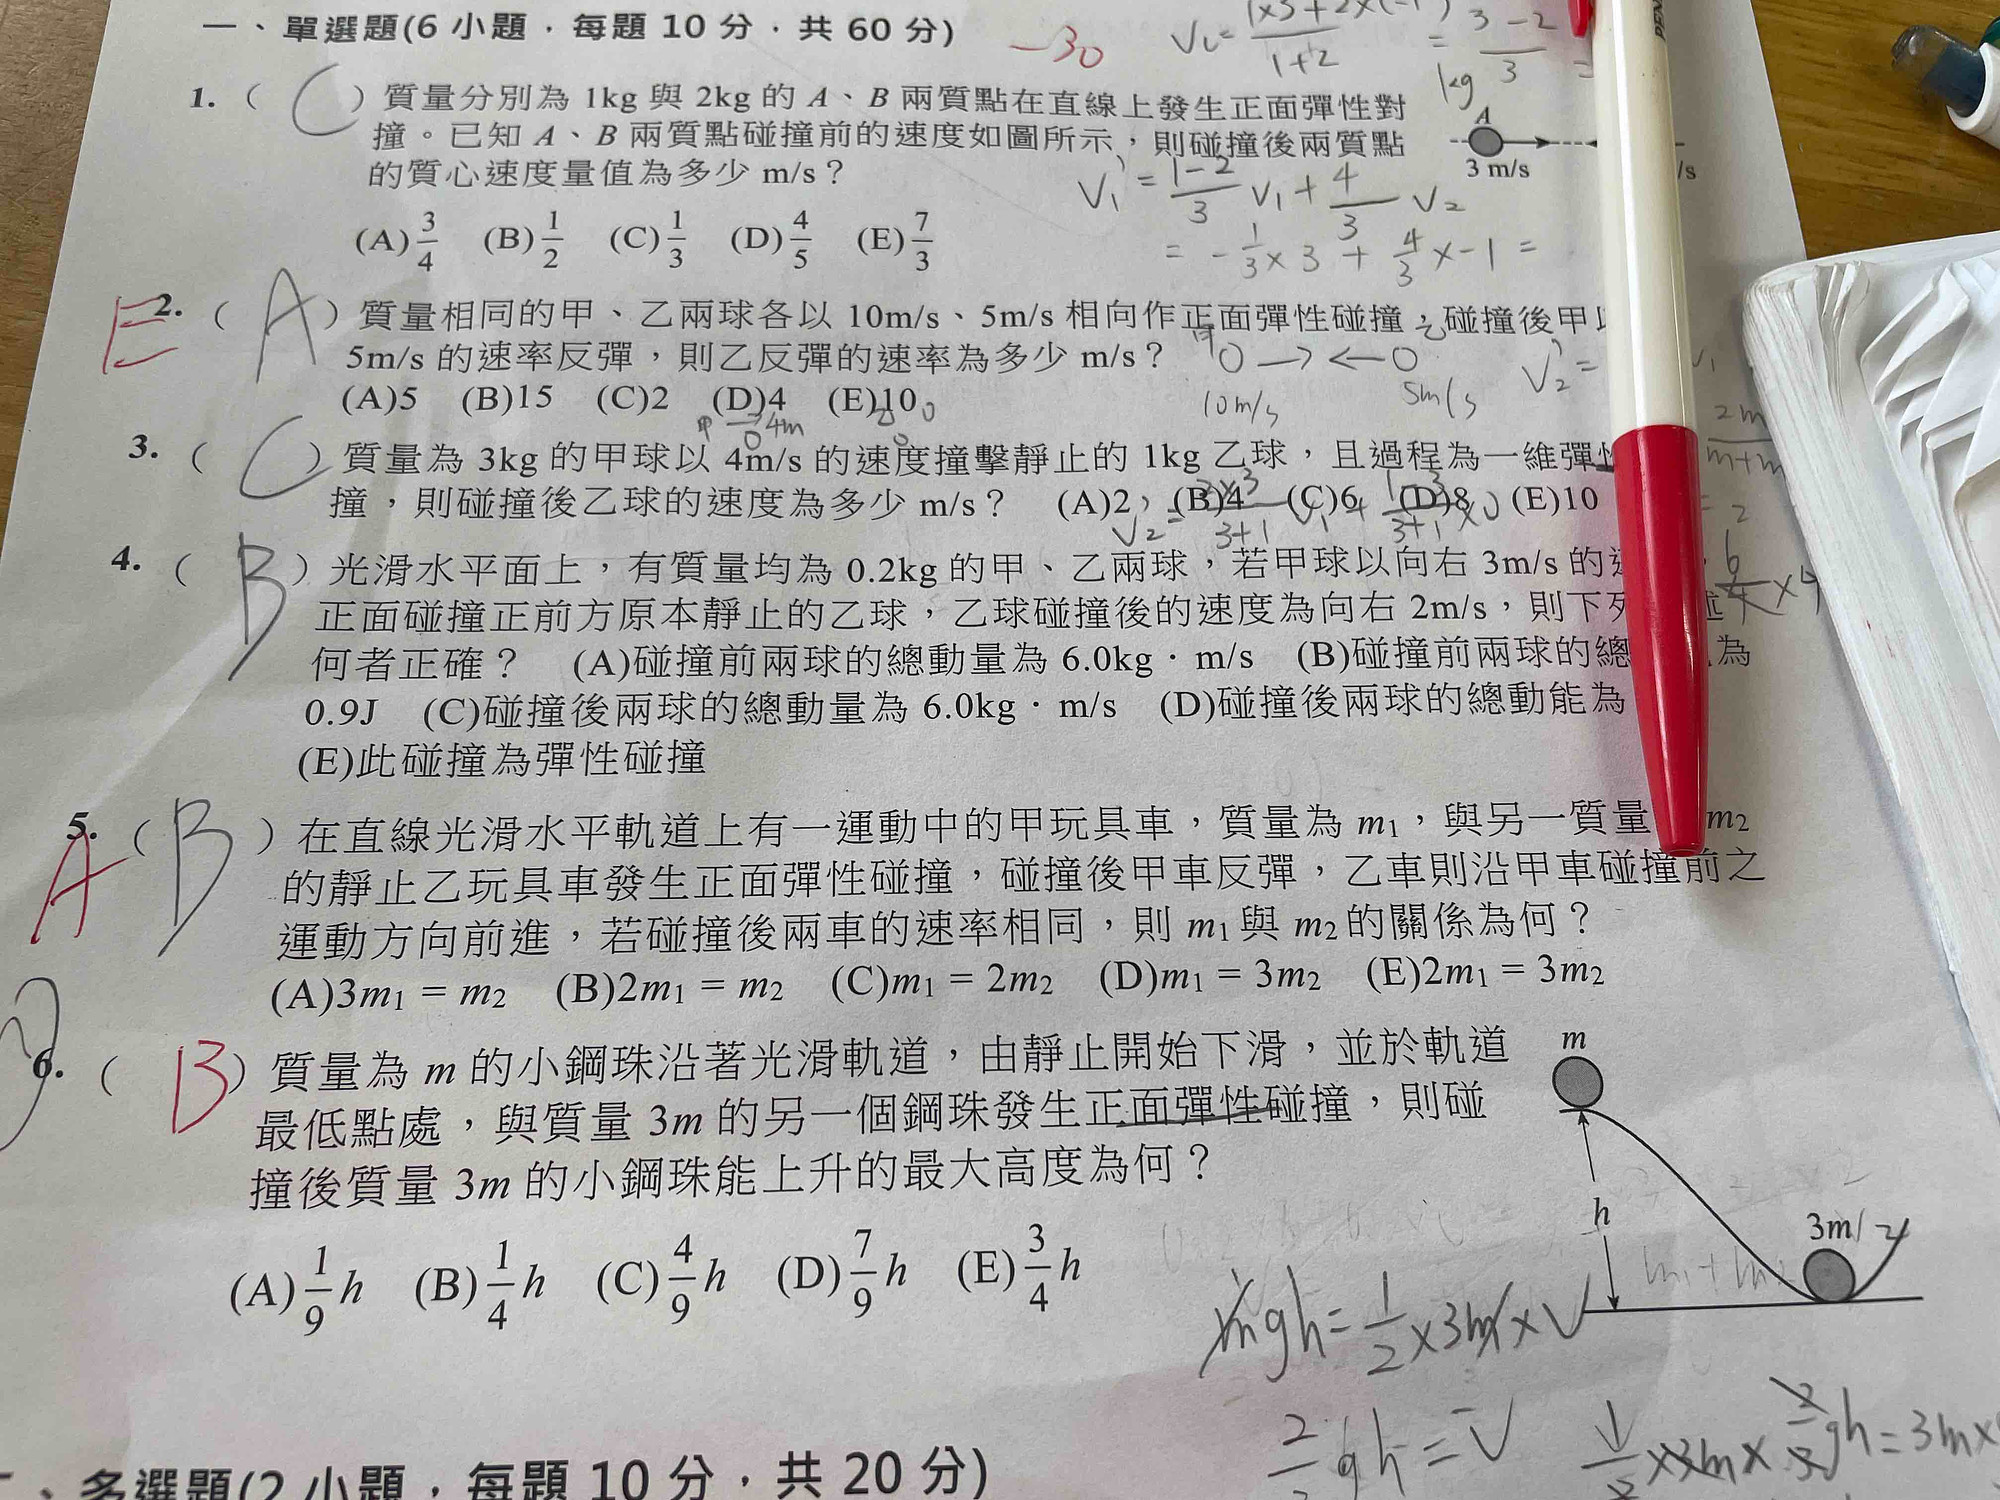 一、單選題(6 小題，每題 10 分，共 60 分)
-30
1. ( C ) 質量分別為 1kg 與 2kg 的 A、B 兩質點在直線上發生正面彈性對
撞。已知 A、B 兩質點碰撞前的速度如圖所示，則碰撞後兩質點
的質心速度量值為多少 m/s？
(A) 3/4 (B) 1/2 (C) 1/3 (D) 4/5 (E) 7/3
1kg
A
3 m/s
/s
E 2. ( A ) 質量相同的甲、乙兩球各以 10m/s、5m/s 相向作正面彈性碰撞，碰撞後甲
5m/s 的速率反彈，則乙反彈的速率為多少 m/s？
(A)5 (B)15 (C)2 (D)4 (E)10
10m/s 5m/s
3. ( C ) 質量為 3kg 的甲球以 4m/s 的速度撞擊靜止的 1kg 乙球，且過程為一維彈
撞，則碰撞後乙球的速度為多少 m/s？ (A)2 (B)4 (C)6 (D)8 (E)10
4. ( B ) 光滑水平面上，有質量均為 0.2kg 的甲、乙兩球，若甲球以向右 3m/s 的
正面碰撞正前方原本靜止的乙球，乙球碰撞後的速度為向右 2m/s，則下列
何者正確？ (A)碰撞前兩球的總動量為 6.0kg · m/s (B)碰撞前兩球的總 為
0.9J (C)碰撞後兩球的總動量為 6.0kg · m/s (D)碰撞後兩球的總動能為
(E)此碰撞為彈性碰撞
A 5. ( B ) 在直線光滑水平軌道上有一運動中的甲玩具車，質量為 m1，與另一質量 m2
的靜止乙玩具車發生正面彈性碰撞，碰撞後甲車反彈，乙車則沿甲車碰撞前之
運動方向前進，若碰撞後兩車的速率相同，則 m1 與 m2 的關係為何？
(A)3m1 = m2 (B)2m1 = m2 (C)m1 = 2m2 (D)m1 = 3m2 (E)2m1 = 3m2
6. ( B ) 質量為 m 的小鋼珠沿著光滑軌道，由靜止開始下滑，並於軌道
最低點處，與質量 3m 的另一個鋼珠發生正面彈性碰撞，則碰
撞後質量 3m 的小鋼珠能上升的最大高度為何？
(A) 1/9 h (B) 1/4 h (C) 4/9 h (D) 7/9 h (E) 3/4 h
m
h
3m
mgh = 1/2 × 3m × V
2/3 gh = V
、多選題(2 小題，每題 10 分，共 20 分)